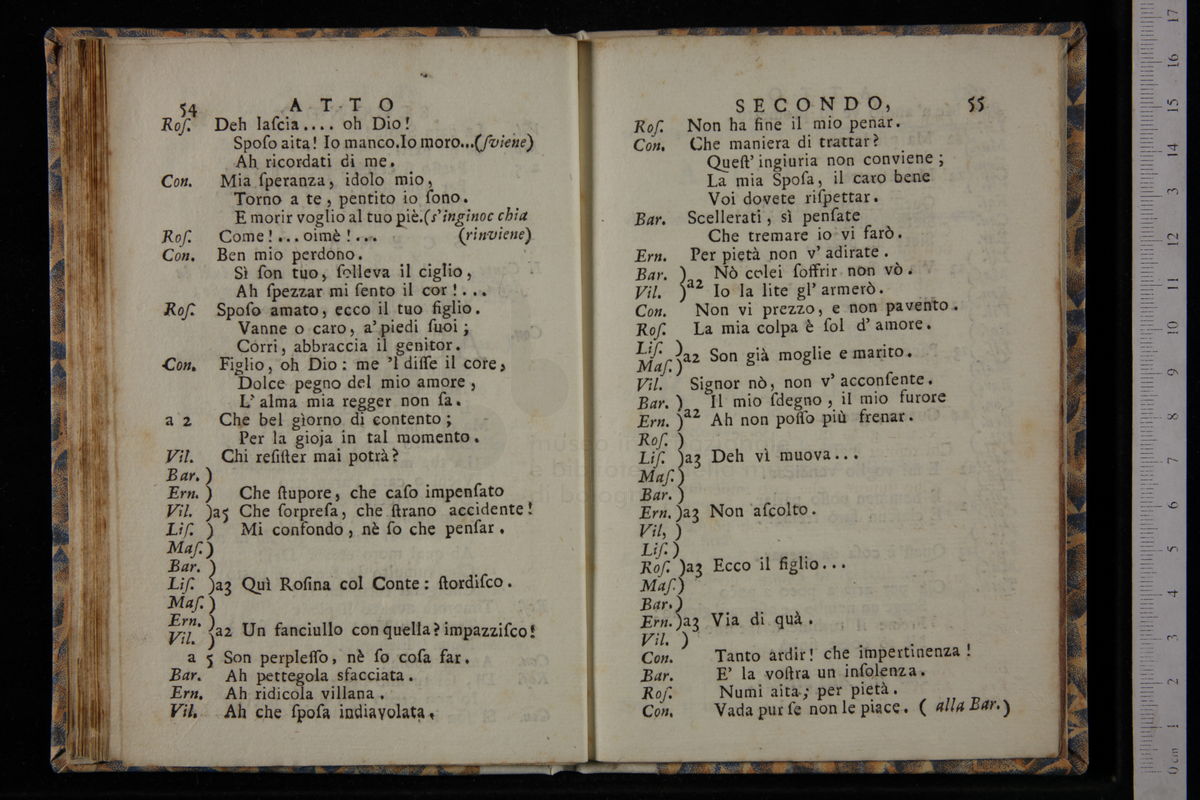 54 ATTO
Roſ. Deh laſcia.... oh Dio!
Spoſo aita! Io manco.Io moro...(ſviene)
Ah ricordati di me.
Con. Mia ſperanza, idolo mio,
Torno a te, pentito io ſono.
E morir voglio al tuo piè.(s'inginoc chia
Roſ. Come!... oimè!... (rinviene)
Con. Ben mio perdono.
Sì ſon tuo, ſolleva il ciglio,
Ah ſpezzar mi ſento il cor!...
Roſ. Spoſo amato, ecco il tuo figlio.
Vanne o caro, a' piedi ſuoi;
Corri, abbraccia il genitor.
Con. Figlio, oh Dio: me 'l diſſe il core,
Dolce pegno del mio amore,
L' alma mia regger non ſa.
a 2 Che bel giorno di contento;
Per la gioja in tal momento.
Vil. Chi reſiſter mai potrà?
Bar. )
Ern. ) Che ſtupore, che caſo impenſato
Vil. )a5 Che ſorpreſa, che ſtrano accidente!
Liſ. ) Mi confondo, nè ſo che penſar.
Maſ.)
Bar. )
Liſ. )a3 Quì Roſina col Conte: ſtordiſco.
Maſ. )
Ern. )
Vil. )a2 Un fanciullo con quella? impazziſco!
a 5 Son perpleſſo, nè ſo coſa far.
Bar. Ah pettegola sfacciata.
Ern. Ah ridicola villana.
Vil. Ah che ſpoſa indiavolata,
SECONDO, 55
Roſ. Non ha fine il mio penar.
Con. Che maniera di trattar?
Queſt' ingiuria non conviene;
La mia Spoſa, il caro bene
Voi dovete riſpettar.
Bar. Scellerati, sì penſate
Che tremare io vi farò.
Ern. Per pietà non v' adirate.
Bar. ) Nò colei ſoffrir non vò.
Vil. )a2 Io la lite gl' armerò.
Con. Non vi prezzo, e non pavento.
Roſ. La mia colpa è ſol d' amore.
Liſ. )
Maſ.)a2 Son già moglie e marito.
Vil. Signor nò, non v' acconſente.
Bar. ) Il mio ſdegno, il mio furore
Ern. )a2 Ah non poſſo più frenar.
Roſ. )
Liſ. )a3 Deh vì muova...
Maſ.)
Bar. )
Ern. )a3 Non aſcolto.
Vil, )
Liſ. )
Roſ. )a3 Ecco il figlio...
Maſ.)
Bar. )
Ern. )a3 Via di quà.
Vil. )
Con. Tanto ardir! che impertinenza!
Bar. E' la voſtra un inſolenza.
Roſ. Numi aita; per pietà.
Con. Vada pur ſe non le piace. ( alla Bar.)